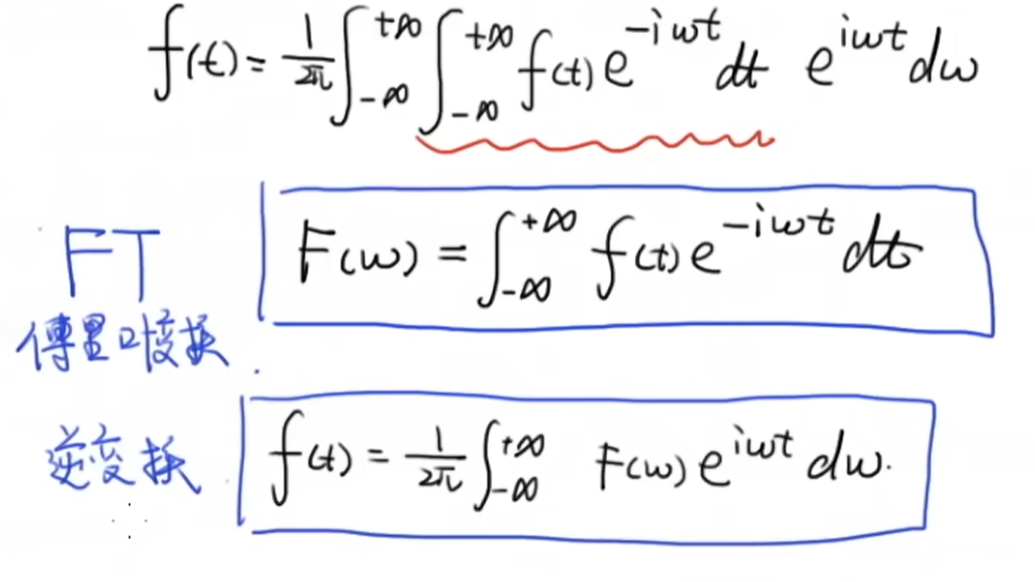 f(t) = \frac{1}{2\pi} \int_{-\infty}^{+\infty} \int_{-\infty}^{+\infty} f(t) e^{-iωt} dt e^{iωt} dω
FT F(ω) = \int_{-\infty}^{+\infty} f(t) e^{-iωt} dt
傅里叶变换.
逆变换 f(t) = \frac{1}{2\pi} \int_{-\infty}^{+\infty} F(ω) e^{iωt} dω.